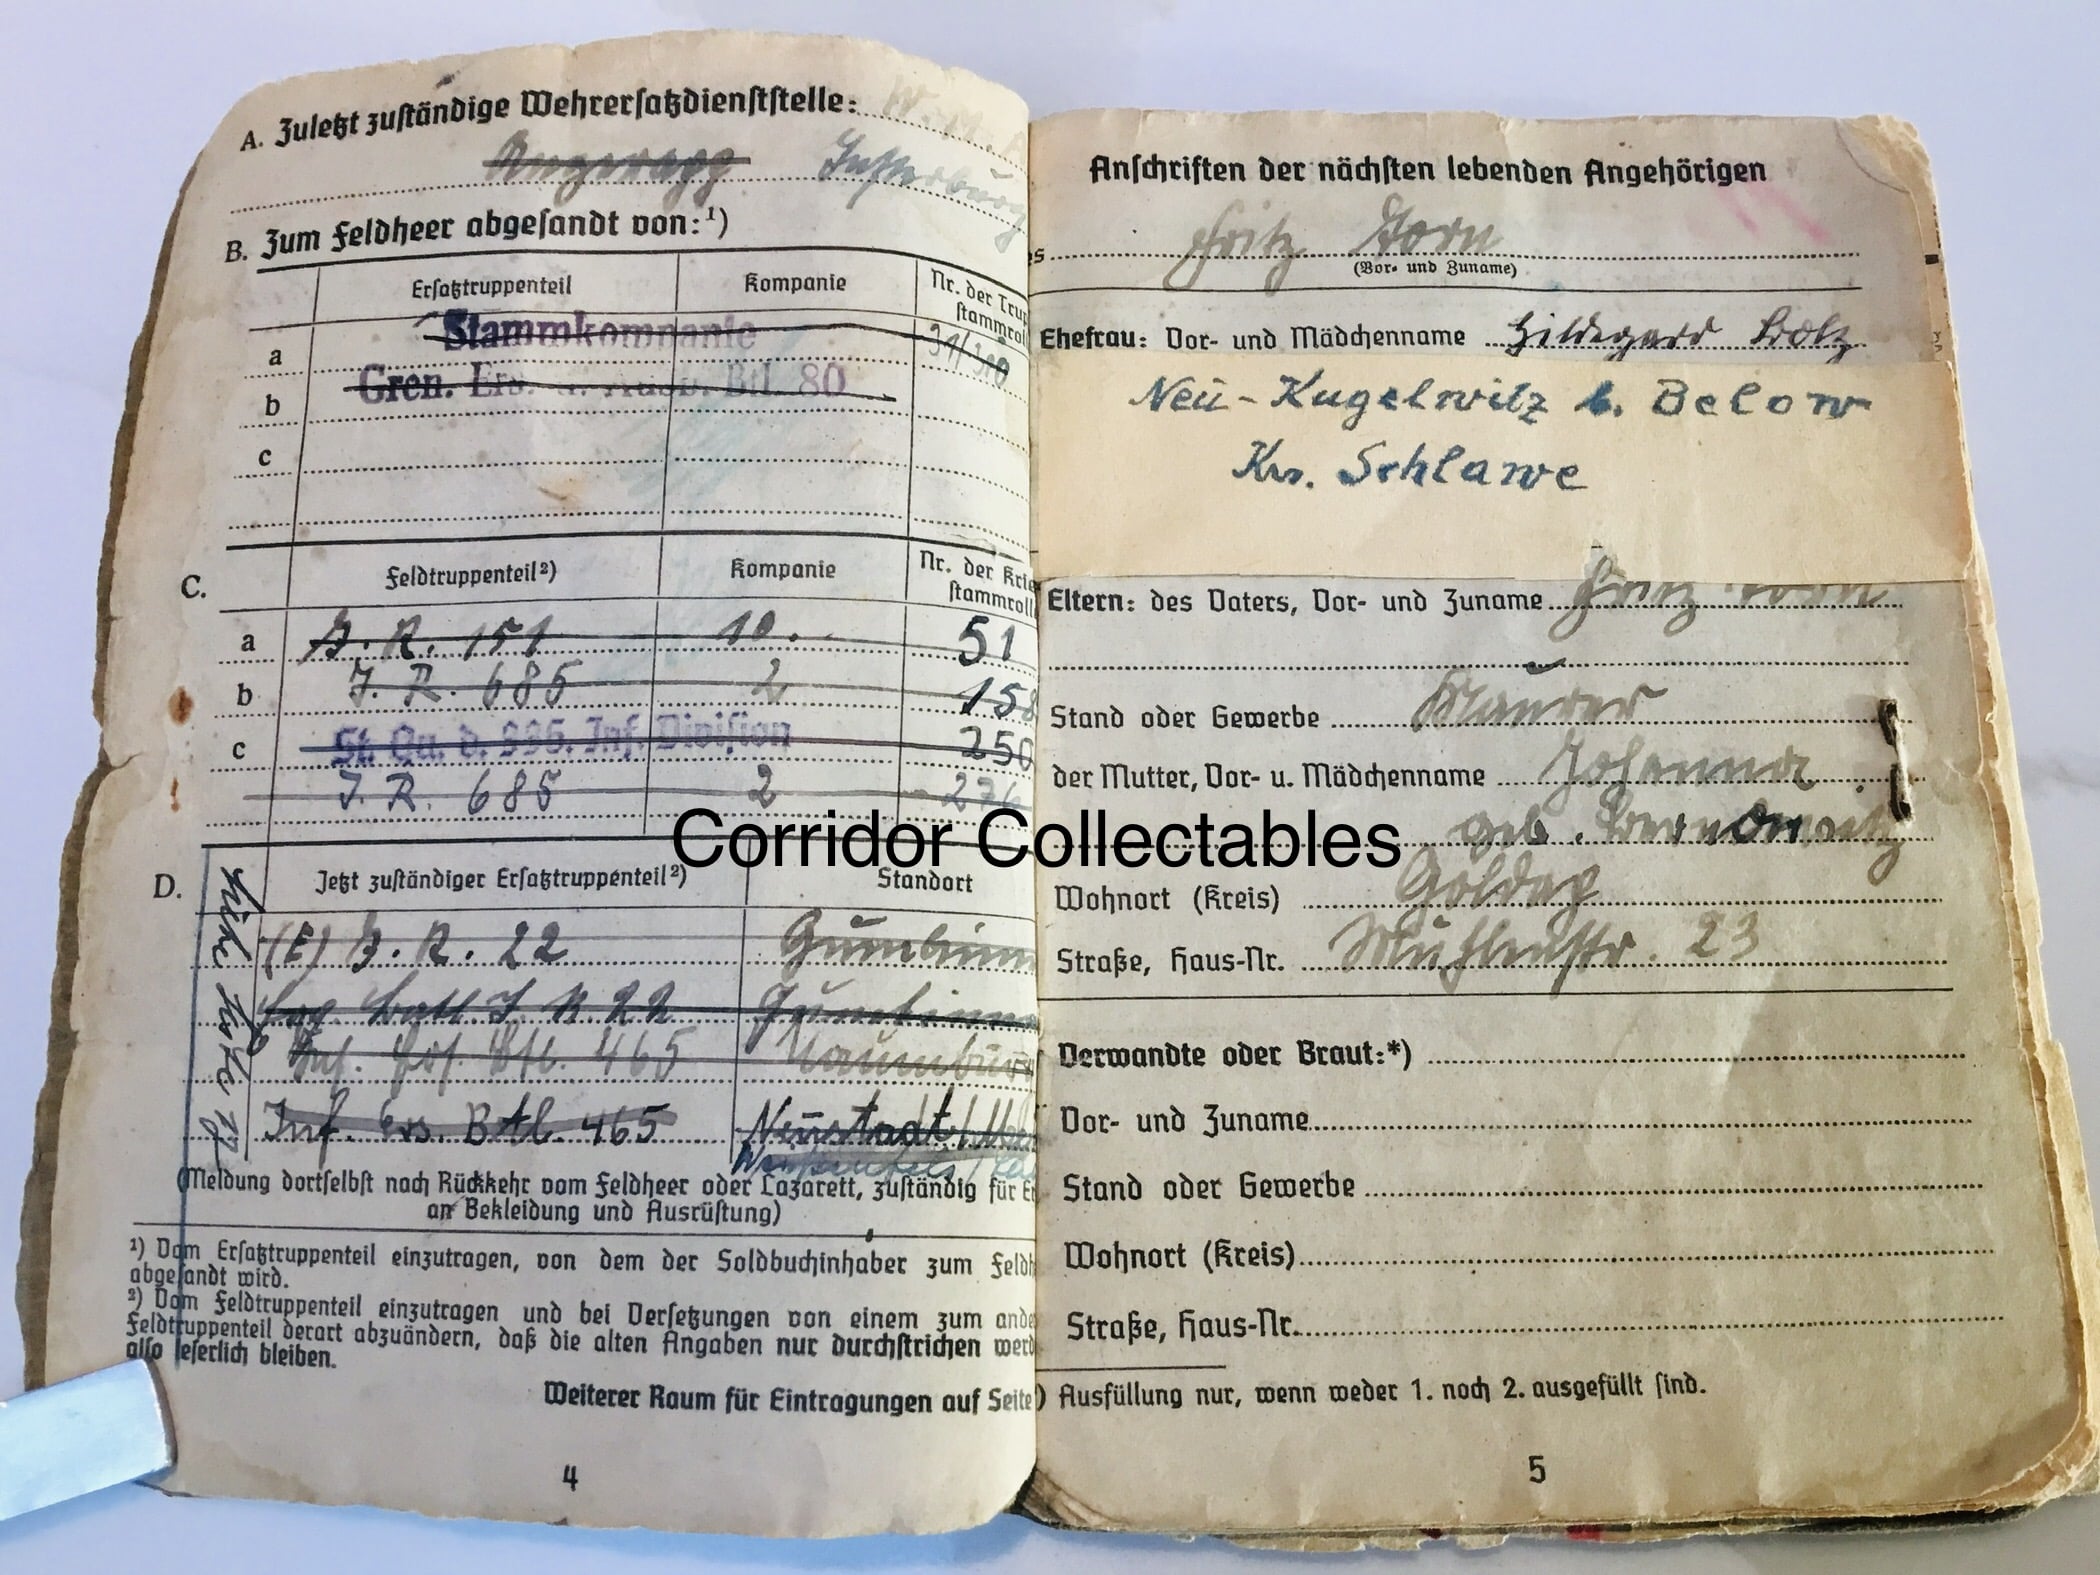 A. Zuletzt zuständige Wehrersatzdienststelle: W.M.
Angerapp Insterburg
B. Zum Feldheer abgesandt von:¹)
Ersatztruppenteil Kompanie Nr. der Trup
stammroll
a Stammkompanie 31/310
b Gren. Ers. u. Ausb. Btl. 80
c
C. Feldtruppenteil²) Kompanie Nr. der Krie
stammroll
a J. R. 151 10. 51
b J. R. 685 2 158
c St. Qu. d. 336. Inf. Division 250
J. R. 685 2 276
D. Jetzt zuständiger Ersatztruppenteil²) Standort
siehe Seite 17
(E) J. R. 22 Gumbinn
Batl. J. R. 22 Gumbinn
Inf. Ers. Btl. 465 Naumbur
Inf. Ers. Btl. 465 Neustadt
Weissenfels
(Meldung dortselbst nach Rückkehr vom Feldheer oder Lazarett, zuständig für E
an Bekleidung und Ausrüstung)
¹) Vom Ersatztruppenteil einzutragen, von dem der Soldbuchinhaber zum Feldh
abgesandt wird.
²) Vom Feldtruppenteil einzutragen und bei Versetzungen von einem zum ande
Feldtruppenteil derart abzuändern, daß die alten Angaben nur durchstrichen werd
also leserlich bleiben.
Weiterer Raum für Eintragungen auf Seite
4
Anschriften der nächsten lebenden Angehörigen
s Fritz Horn
(Vor- und Zuname)
Ehefrau: Vor- und Mädchenname Hildegard
Neu-Kugelwitz b. Below
Kr. Schlawe
Eltern: des Vaters, Vor- und Zuname Fritz Horn
Stand oder Gewerbe Maurer
der Mutter, Vor- u. Mädchenname Johanna
geb.
Wohnort (Kreis) Goldap
Straße, Haus-Nr. Mühlenstr. 23
Verwandte oder Braut:*)
Vor- und Zuname
Stand oder Gewerbe
Wohnort (Kreis)
Straße, Haus-Nr.
) Ausfüllung nur, wenn weder 1. noch 2. ausgefüllt sind.
5
Corridor Collectables